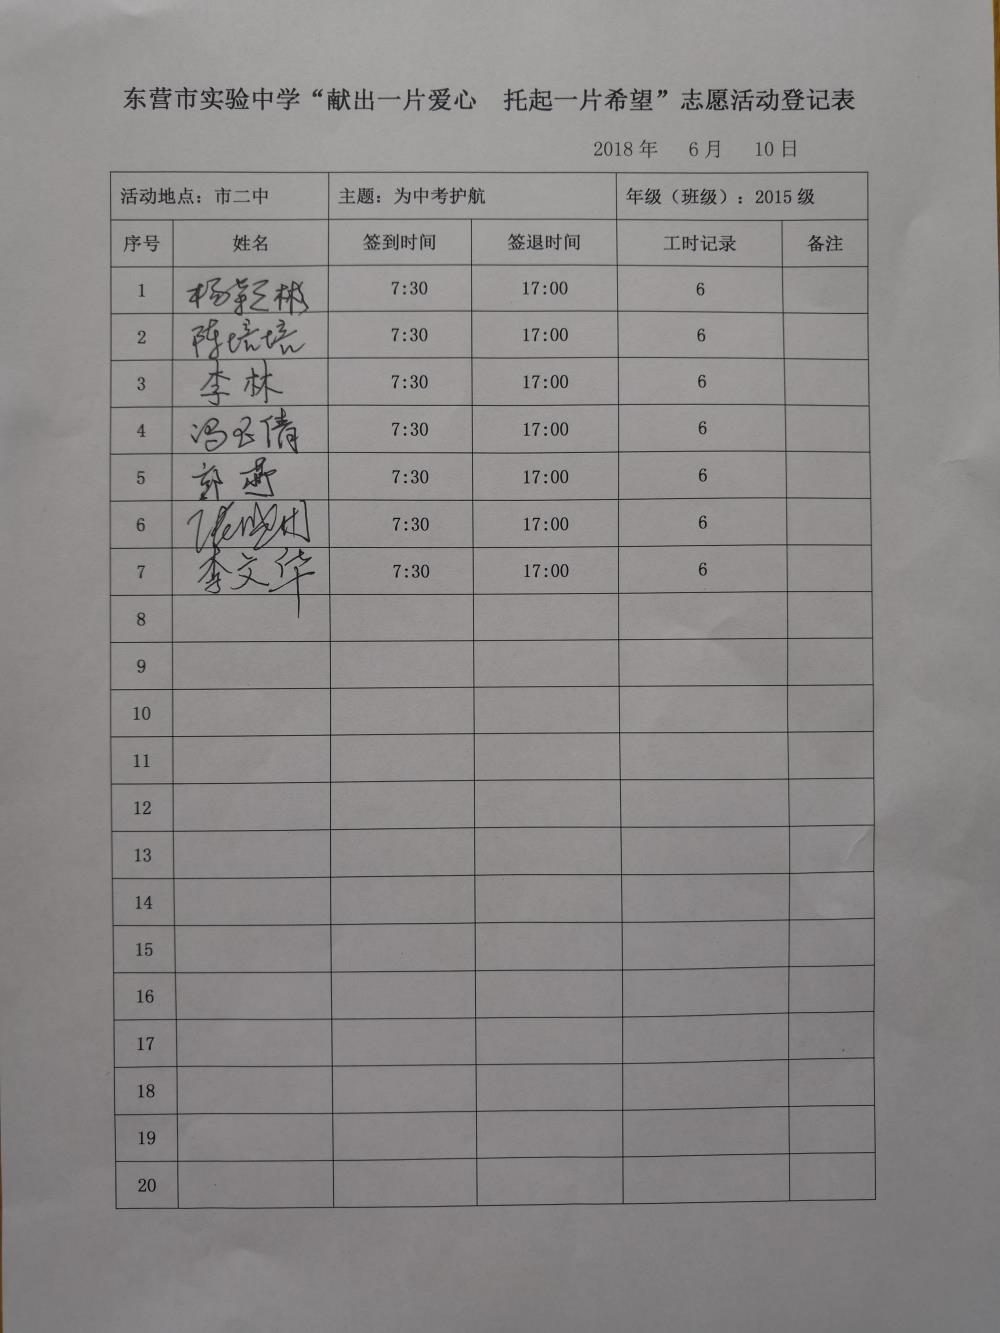 东营市实验中学“献出一片爱心 托起一片希望”志愿活动登记表
2018 年 6 月 10 日
活动地点：市二中 主题：为中考护航 年级（班级）：2015 级
序号 姓名 签到时间 签退时间 工时记录 备注
1 杨颖彬 7:30 17:00 6
2 陈培培 7:30 17:00 6
3 李林 7:30 17:00 6
4 冯玉倩 7:30 17:00 6
5 郭燕 7:30 17:00 6
6 7:30 17:00 6
7 李文华 7:30 17:00 6
8
9
10
11
12
13
14
15
16
17
18
19
20